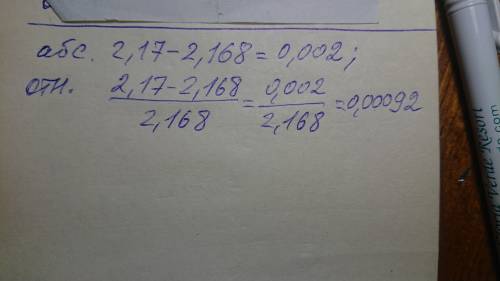 абс. 2,17-2,168=0,002;
отн. (2,17-2,168)/2,168=0,002/2,168=0,00092
Verde Resort